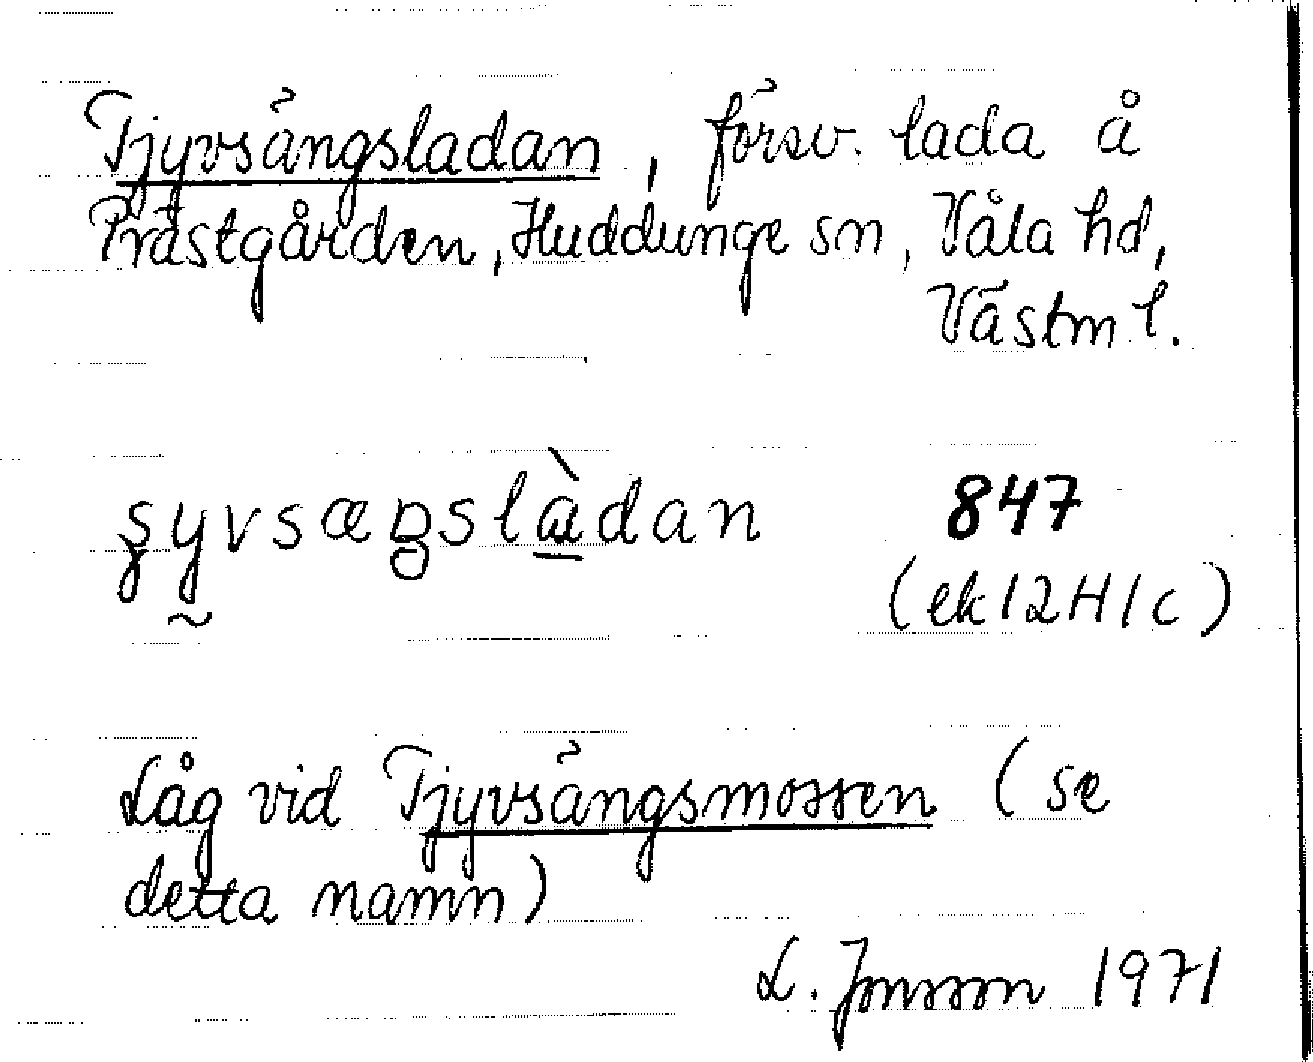 Tjyvsängsladan, försv. lada å
Prästgården, Huddunge sn, Våla hd,
Västm l.
847
(ek 12H1c)
Låg vid Tjyvsängsmossen (se
detta namn)
L. Jonsson 1971